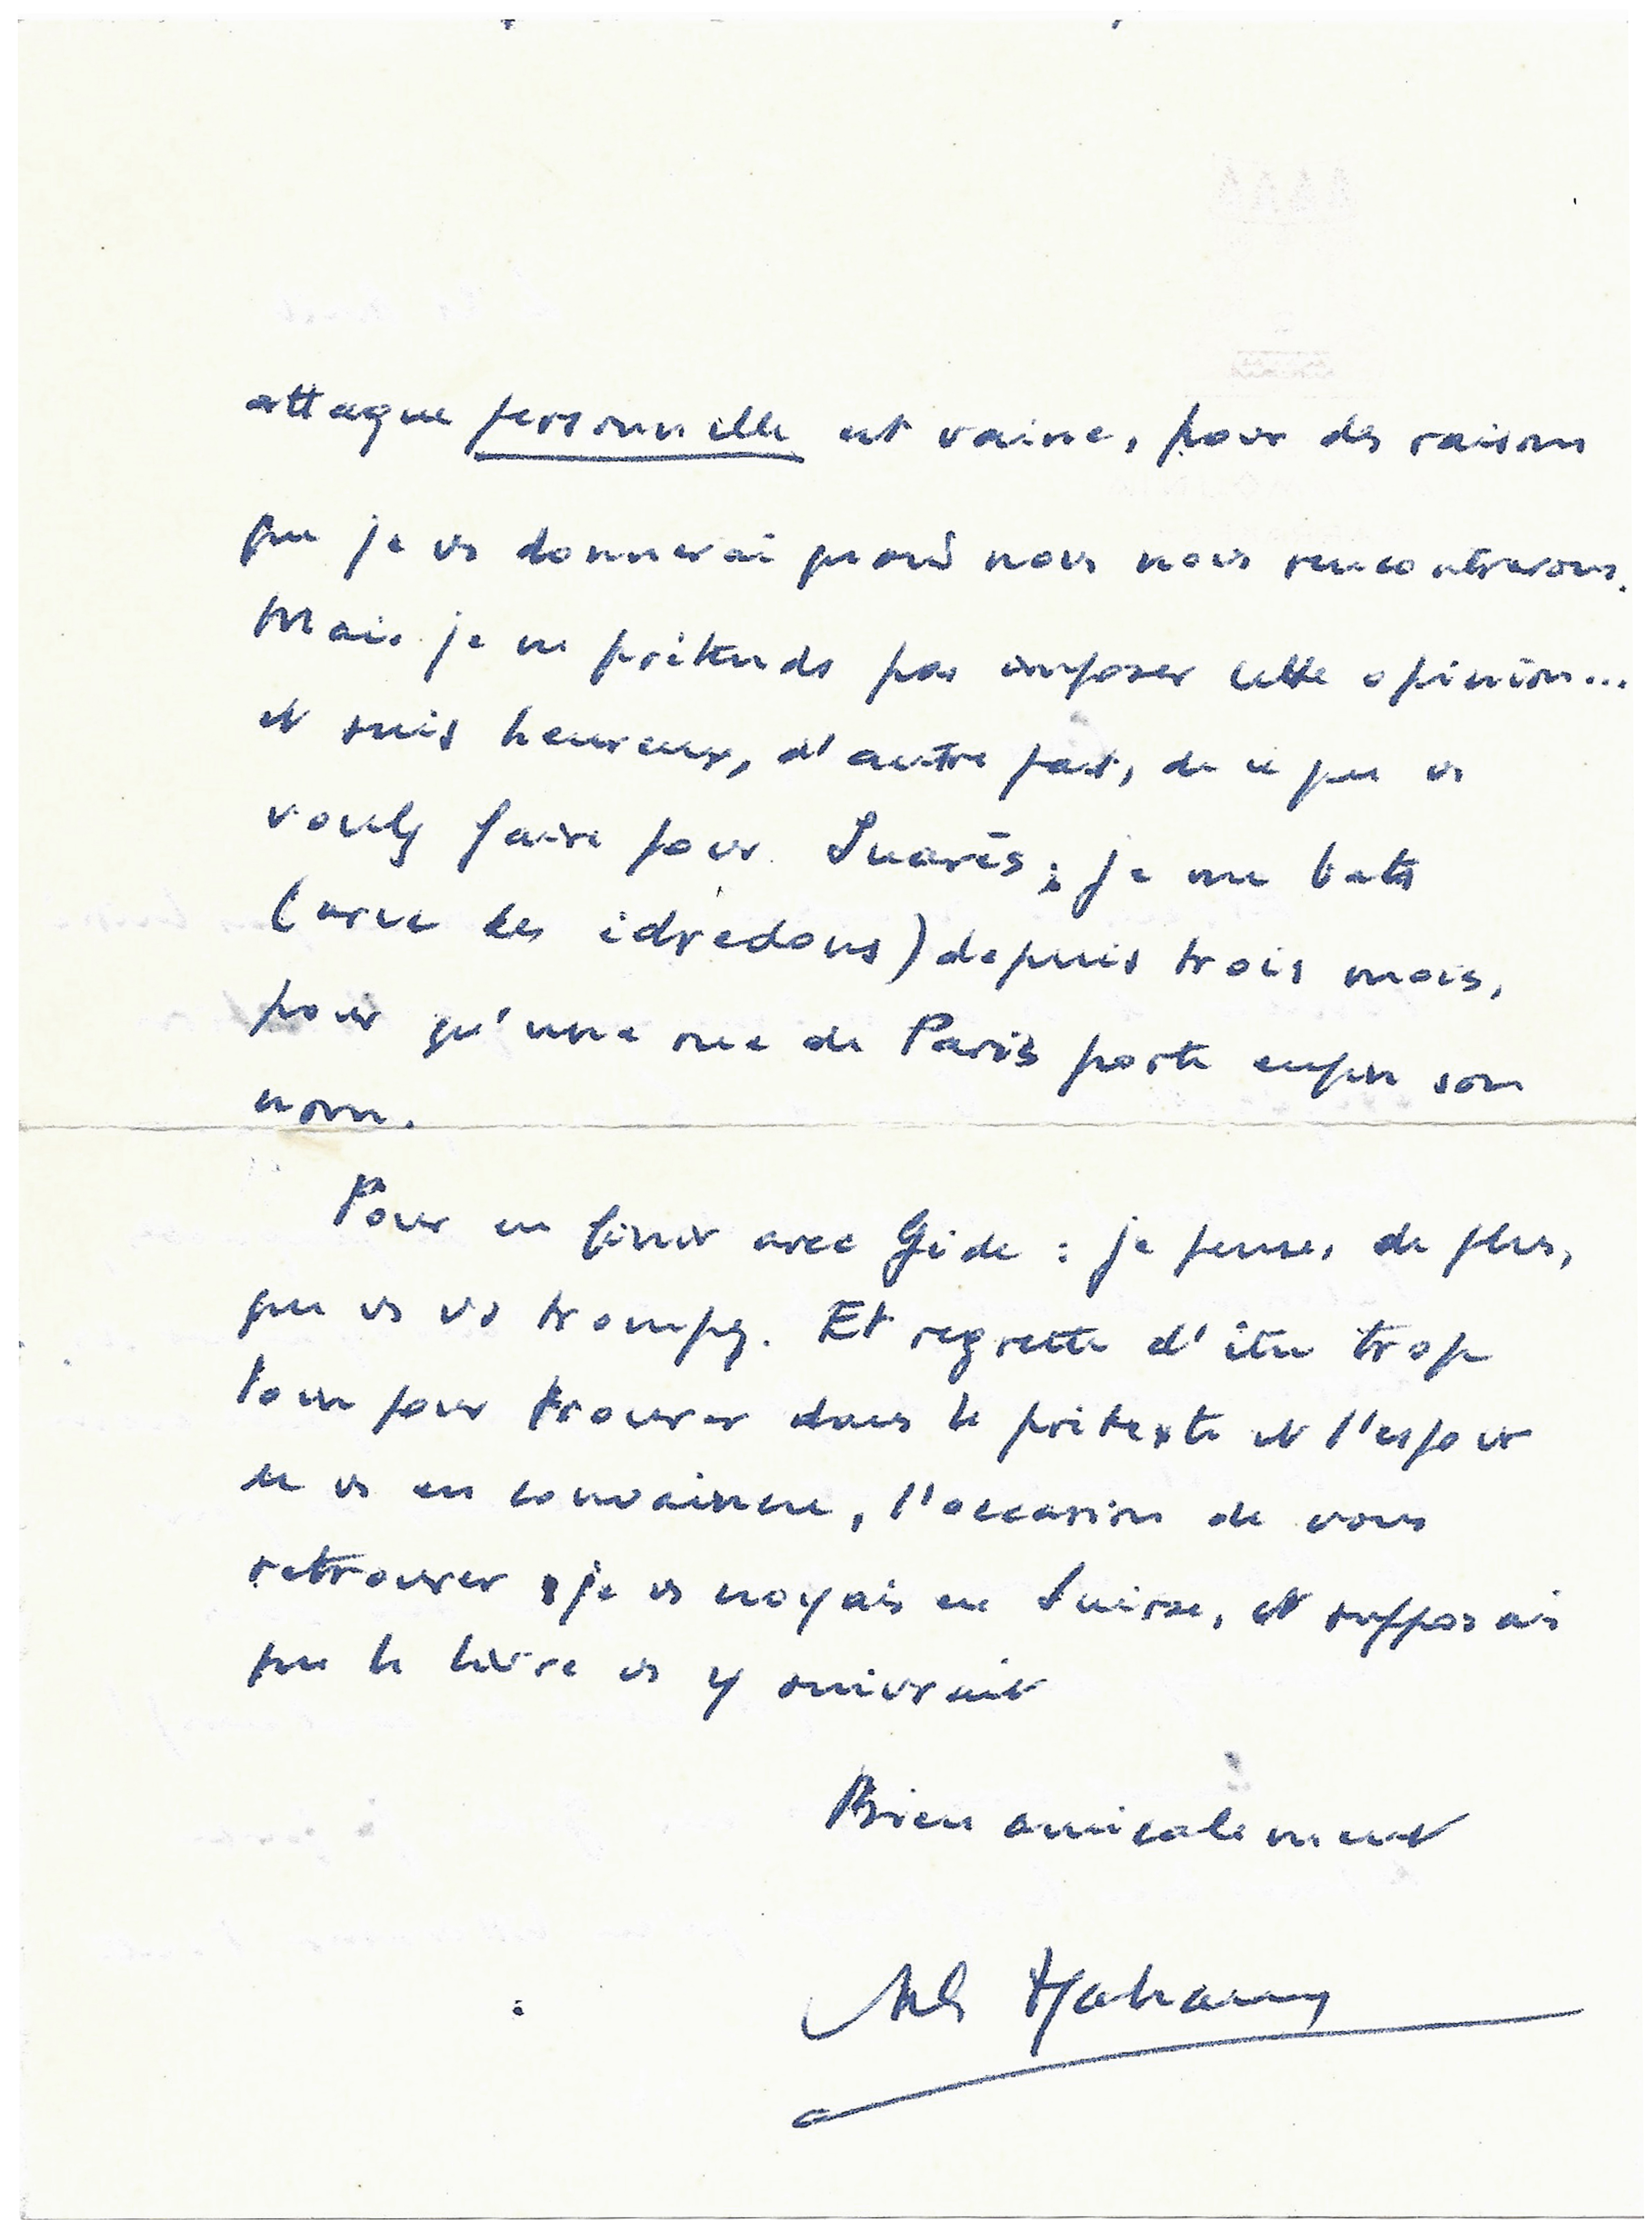 attaque personnelle est vaine, pour des raisons
que je vs donnerai quand nous nous rencontrerons.
Mais je ne prétends pas imposer cette opinion...
et suis heureux, d'autre part, de ce que vs
voulez faire pour Suarès ; je me bats
(avec les édredons) depuis trois mois,
pour qu'une rue de Paris porte enfin son
nom.
Pour en finir avec Gide : je pense, de plus,
que vs vs trompez. Et regrette d'être trop
loin pour trouver dans le prétexte et l'espoir
de vs en convaincre, l'occasion de vous
retrouver ; je vs croyais en Suisse, et supposais
que le livre vs y suivrait
Bien amicalement